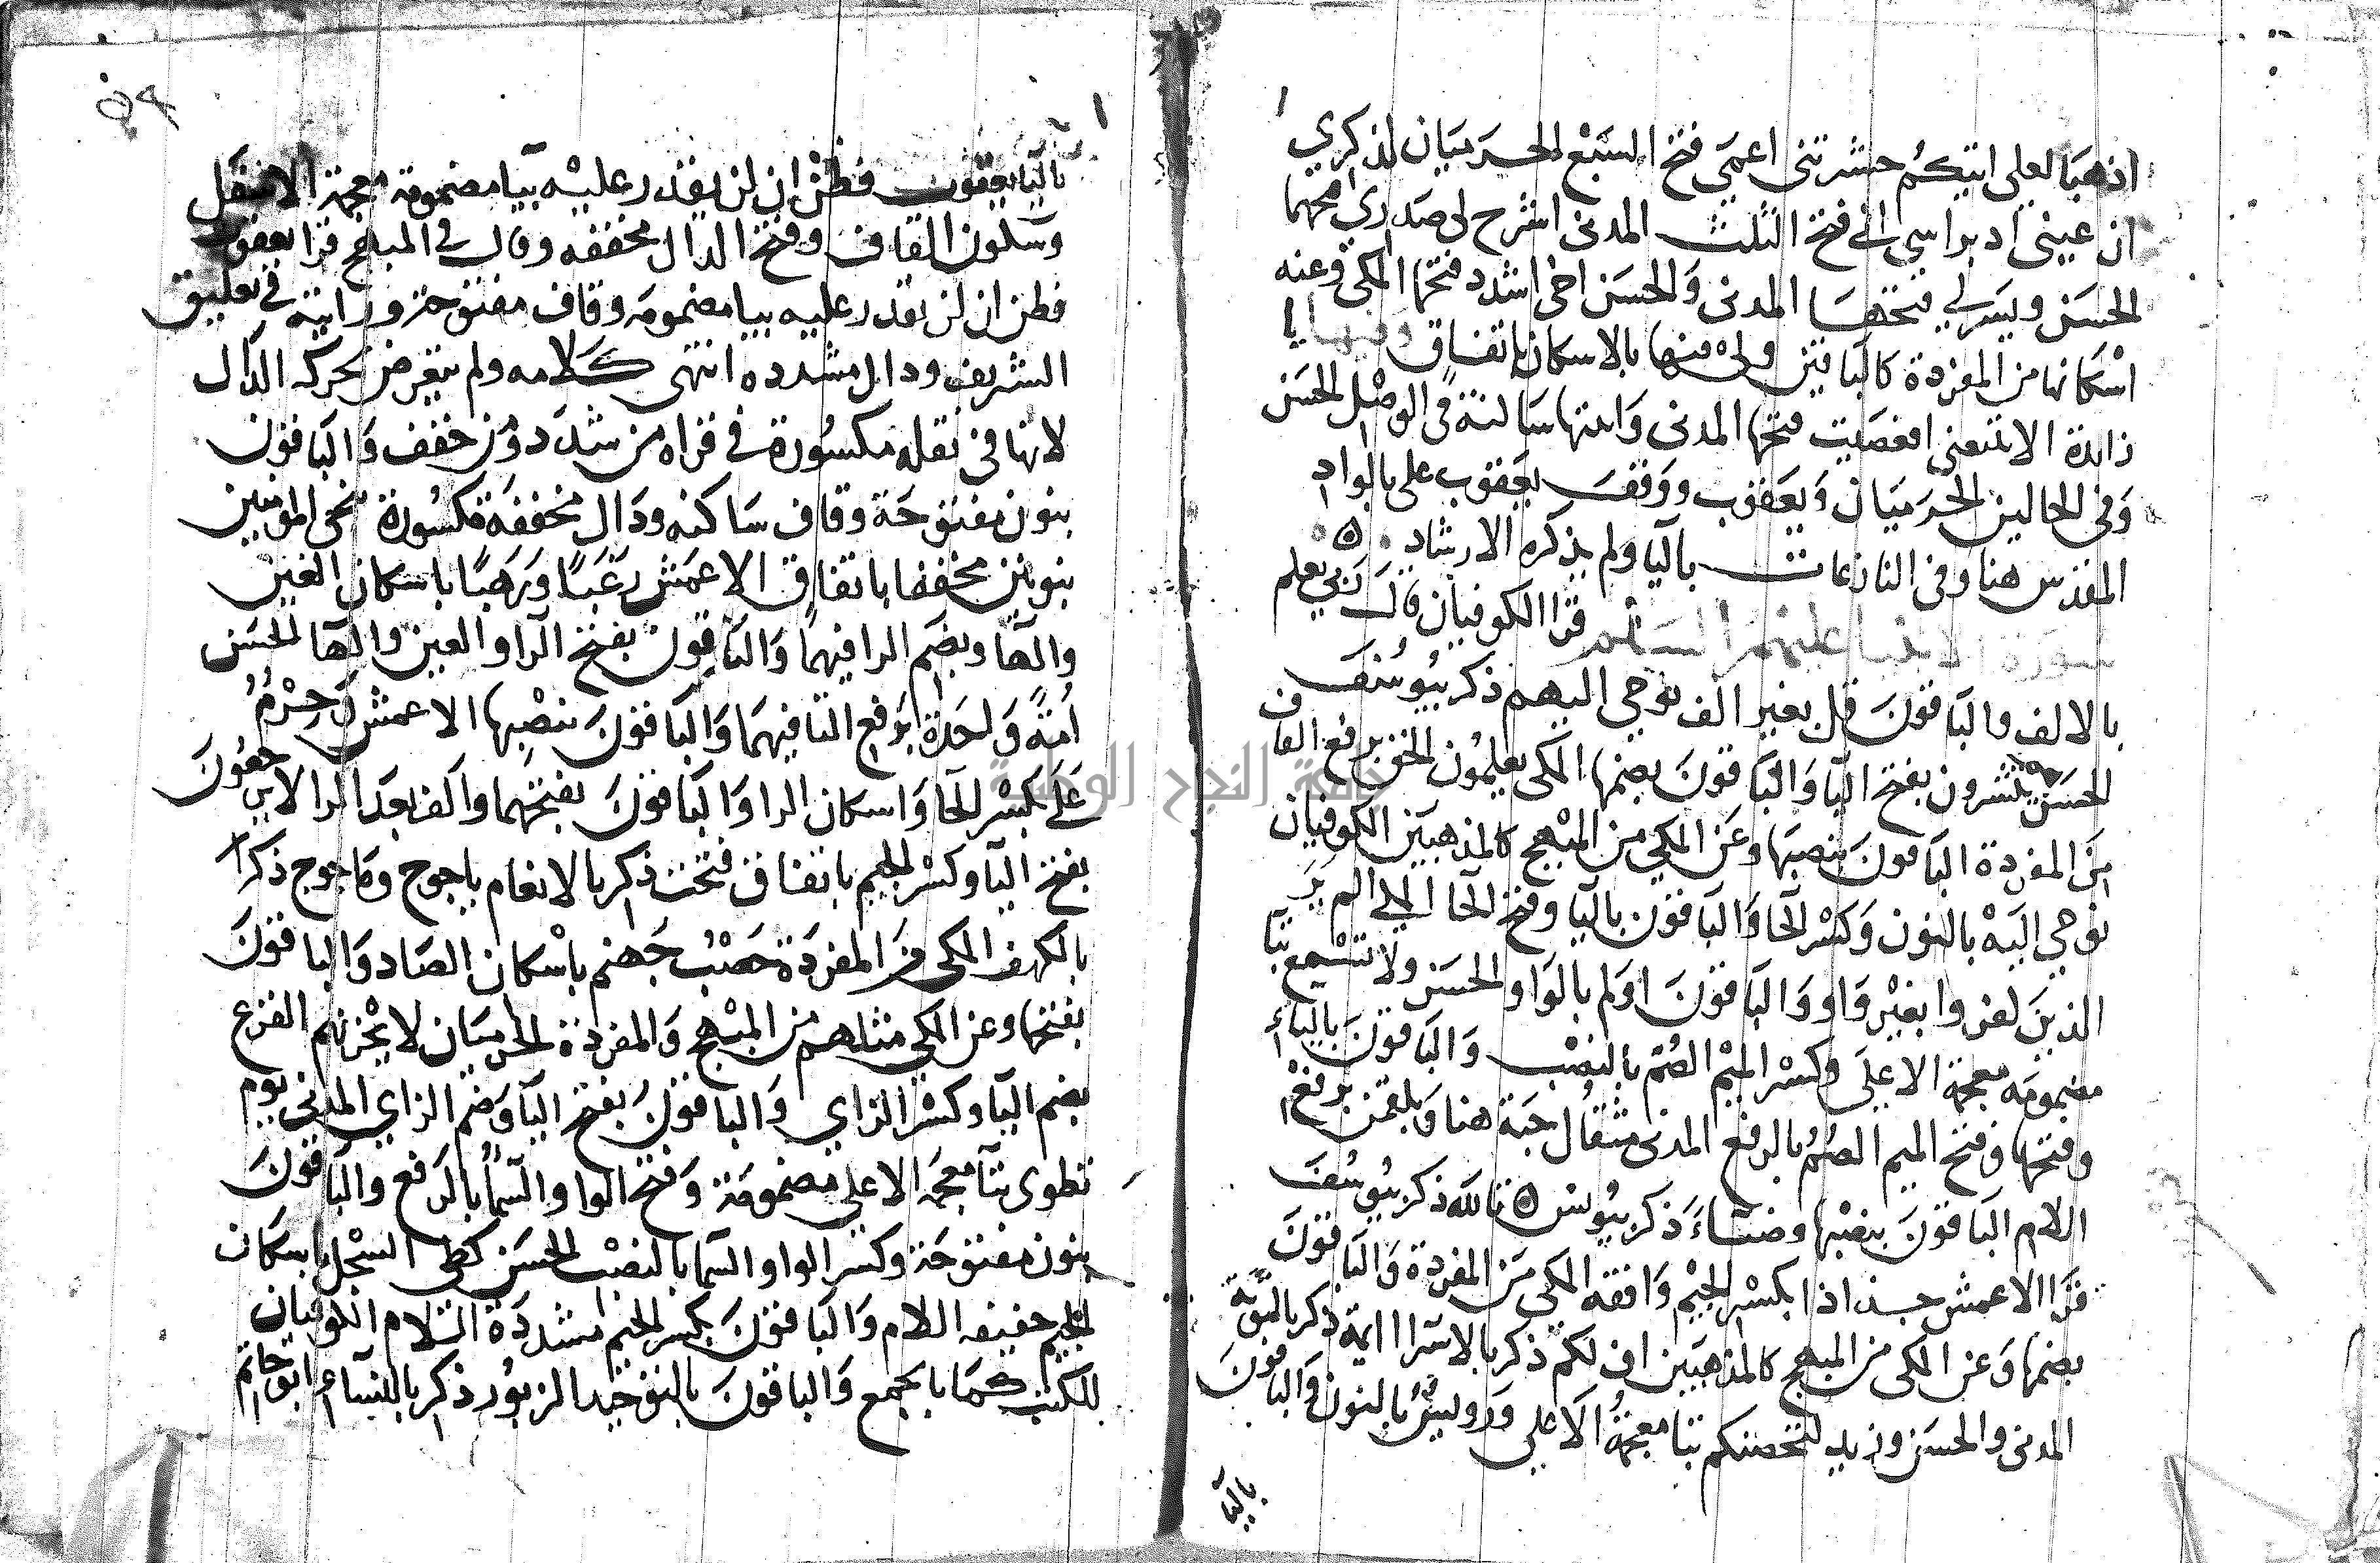 اذهبا لعلي اتيكم حشرتني اعمي فتح السبع الحرميان لذكري
ان عيني اد براسي اني فتح الثلث المدني اشرح لي صدري امحهما
الحسن ويسر لي فتحها المدني والحسن اخي اشدد فتحها المكي وعنه
اسكانها من المفردة كالباقين ولي فيها بالاسكان باتفاق وفيها يا
زائدة الا تتبعني افعصيت فتحها المدني واثبتها ساكنة في الوصل الحسن
وفي الحالين الحرميان ويعقوب ووقف يعقوب على بالواد
المقدس هنا وفي النازعات باليا ولم يذكره الارشاد
سورة الانبيا عليهم السلم قرا الكوفيان قال ربي يعلم
بالالف والباقون قل بغير الف نوحي اليهم ذكر بيوسف
الحسن ينشرون بفتح اليا والباقون بضمها المكي يعلمون الحق برفع القاف
من المفردة الباقون بنصبها وعن المكي من المبهج كالمذهبين الكوفيان
نوحي اليه بالنون وكسر الحا والباقون باليا وفتح الحا المكي الم ير
الذين كفروا بغير واو والباقون اولم بالواو الحسن ولا تسمع بتا
مضمومه معجمة الاعلى وكسر الميم الصم بالنصب والباقون بالياء
وفتحها وفتح الميم الصم بالرفع المدني مثقال حبة هنا وبلقمن برفع
اللام الباقون بنصبها وضياء ذكر بيونس تالله ذكر بيوسف
قرا الاعمش جذاذا بكسر الجيم وافقه المكي من المفردة والباقون
بضمها وعن المكي من المبهج كالمذهبين اف لكم ذكر بالاسرا ايمة ذكر بالتوبة
المدني والحسن وزيد لتحصنكم بتا معجمة الاعلى ورويس بالنون والباقون
باليا
باليا يعقوب فظن ان لن يقدر عليه بيا مضمومة معجمة الاسفل
وسكون القاف وفتح الدال مخففه وقال في المبهج قرا يعقوب
فظن ان لن يقدر عليه بيا مضمومه وقاف مفتوحة ورايته في تعليق
الشريف ودال مشدده انتهى كلامه ولم يتعرض بحركه الدال
لانها في نقله مكسورة في قراه من شدد ومن خفف والباقون
بنون مفتوحة وقاف ساكنه ودال مخففة مكسورة ننجي المؤمنين
بنونين مخففا باتفاق الاعمش رغبا ورهبا باسكان الغين
والها وبضم الرا فيهما والباقون بفتح الرا والغين والها الحسن
امة واحدة برفع التا فيهما والباقون بنصبها الاعمش وحرم
على بكسر الحا واسكان الرا والباقون بفتحهما والف بعد الرا لا يرجعون
بفتح اليا وكسر الجيم باتفاق فتحت ذكر بالانعام ياجوج وماجوج ذكرا
بالكهف المكي من المفردة حصب جهنم باسكان الصاد والباقون
بفتحها وعن المكي مثلهم من المبهج والمفردة الحرميان لا يحزنهم الفزع
بضم اليا وكسر الزاي والباقون بفتح اليا وضم الزاي المدني يوم
تطوى بتا معجمه الاعلى مضمومة وفتح الواو السما بالرفع والباقون
بنون مفتوحة وكسر الواو السما بالنصب الحسن كطي السجل باسكان
الجيم خفيفه اللام والباقون بكسر الجيم مشددة اللام الكوفيان
للكتب كما بالجمع والباقون بالتوحيد الزبور ذكر بالنساء ابو حاتم
جامعة النجاح الوطنية